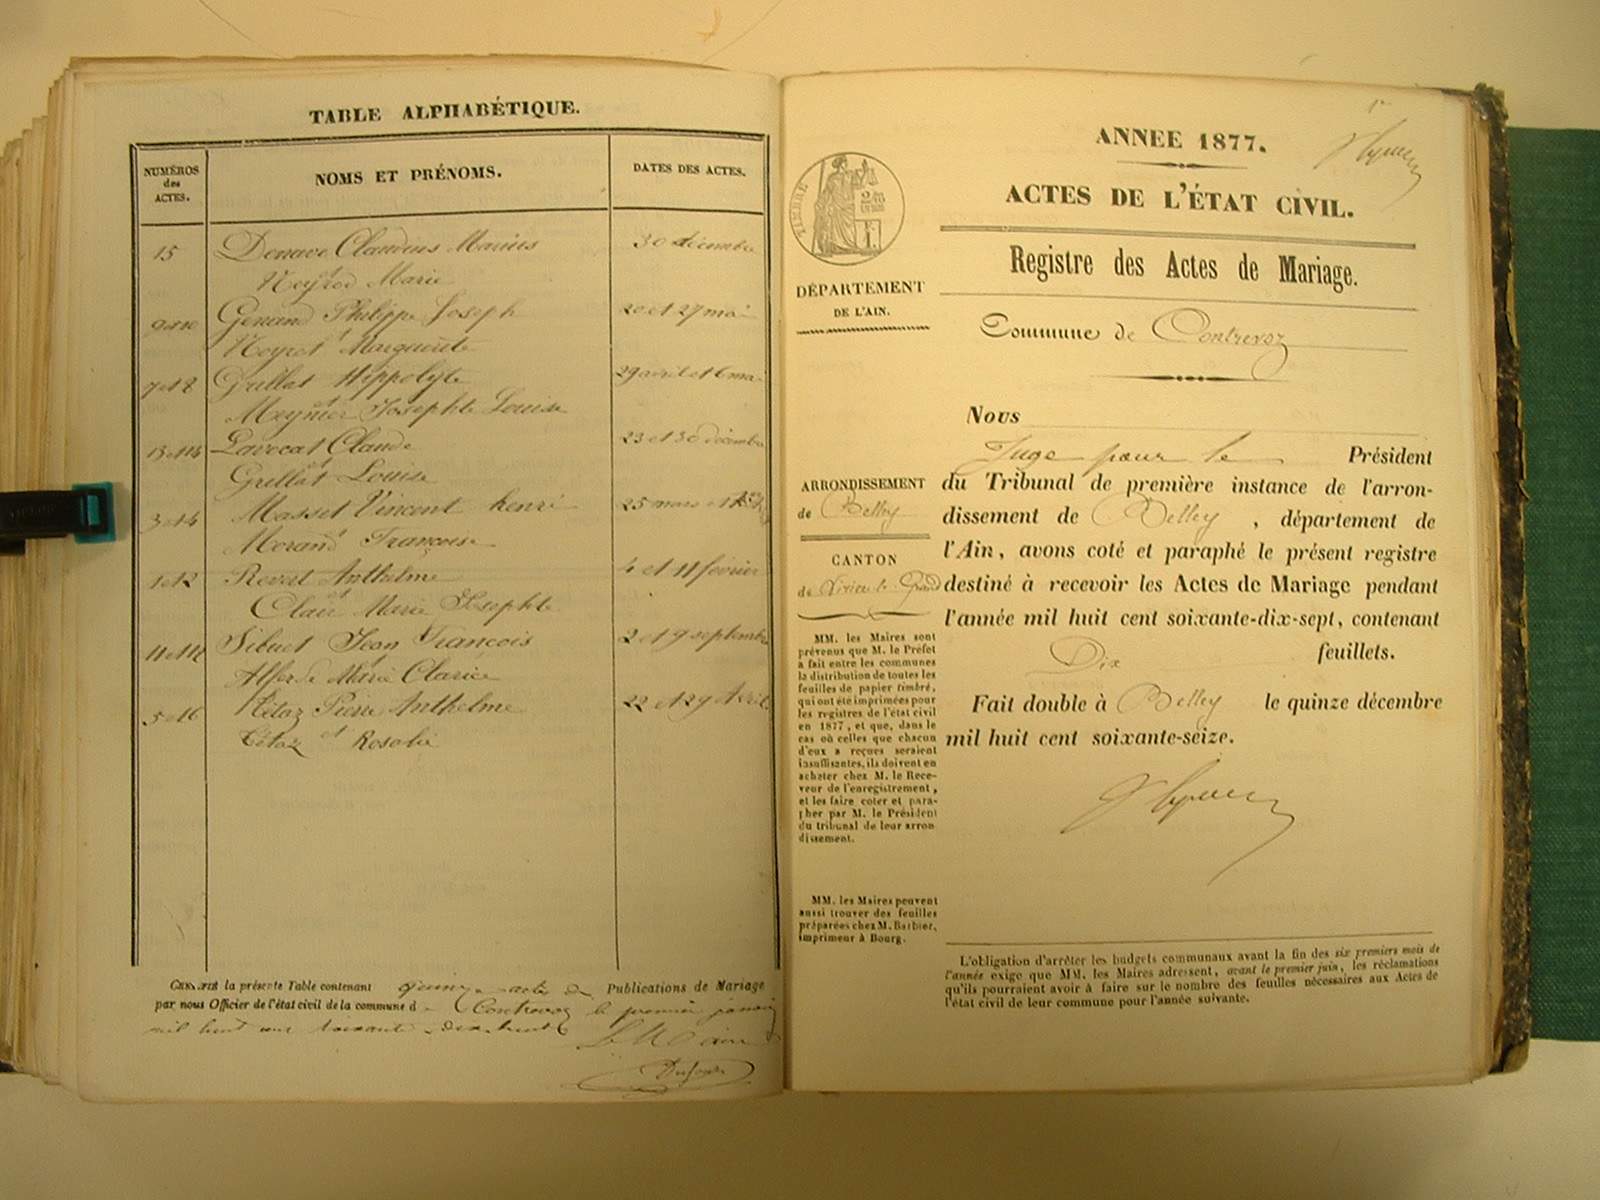 TABLE ALPHABÉTIQUE.
NUMÉROS
des
ACTES.
NOMS ET PRÉNOMS.
DATES DES ACTES.
15 Claudius Marius 30 décembre
Neyrod Marie
9 et 10 Genand Philippe Joseph 20 et 27 mai
et
Neyret Marguerite
7 et 8 Grillat Hippolyte 29 avril et 6 mai
et
Meynier Josephte Louise
13 et 14 Lavocat Claude 23 et 30 décembre
et
Grillat Louise
3 et 4 Masset Vincent henri 25 mars et 1er
et
Morand Françoise
1 et 2 Revet Anthelme 4 et 11 février
et
Clair Marie Josephte
11 et 12 Sibuet Jean François 2 et 9 septembre
et
Marie Clarice
5 et 6 Tétaz Pierre Anthelme 22 et 29 Avril
et
Tétaz Rosalie
la présente Table contenant quinze actes de Publications de Mariage
par nous Officier de l'état civil de la commune de Contrevoz le premier janvier
mil huit cent soixante-dix-huit
Le Maire
ANNEE 1877.
ACTES DE L'ÉTAT CIVIL.
Registre des Actes de Mariage.
Commune de Contrevoz
TIMBRE
DÉPARTEMENT
DE L'AIN.
ARRONDISSEMENT
de Belley
CANTON
de Virieu-le-Grand
MM. les Maires sont
prévenus que M. le Préfet
a fait entre les communes
la distribution de toutes les
feuilles de papier timbré,
qui ont été imprimées pour
les registres de l'état civil
en 1877, et que, dans le
cas où celles que chacun
d'eux a reçues seraient
insuffisantes, ils doivent en
acheter chez M. le Rece-
veur de l'enregistrement,
et les faire coter et para-
pher par M. le Président
du tribunal de leur arron-
dissement.
MM. les Maires peuvent
aussi trouver des feuilles
préparées chez M. Barbier,
imprimeur à Bourg.
Nous
Juge pour le Président
du Tribunal de première instance de l'arron-
dissement de Belley, département de
l'Ain, avons coté et paraphé le présent registre
destiné à recevoir les Actes de Mariage pendant
l'année mil huit cent soixante-dix-sept, contenant
Dix feuillets.
Fait double à Belley le quinze décembre
mil huit cent soixante-seize.
L'obligation d'arrêter les budgets communaux avant la fin des six premiers mois de
l'année exige que MM. les Maires adressent, avant le premier juin, les réclamations
qu'ils pourraient avoir à faire sur le nombre des feuilles nécessaires aux Actes de
l'état civil de leur commune pour l'année suivante.